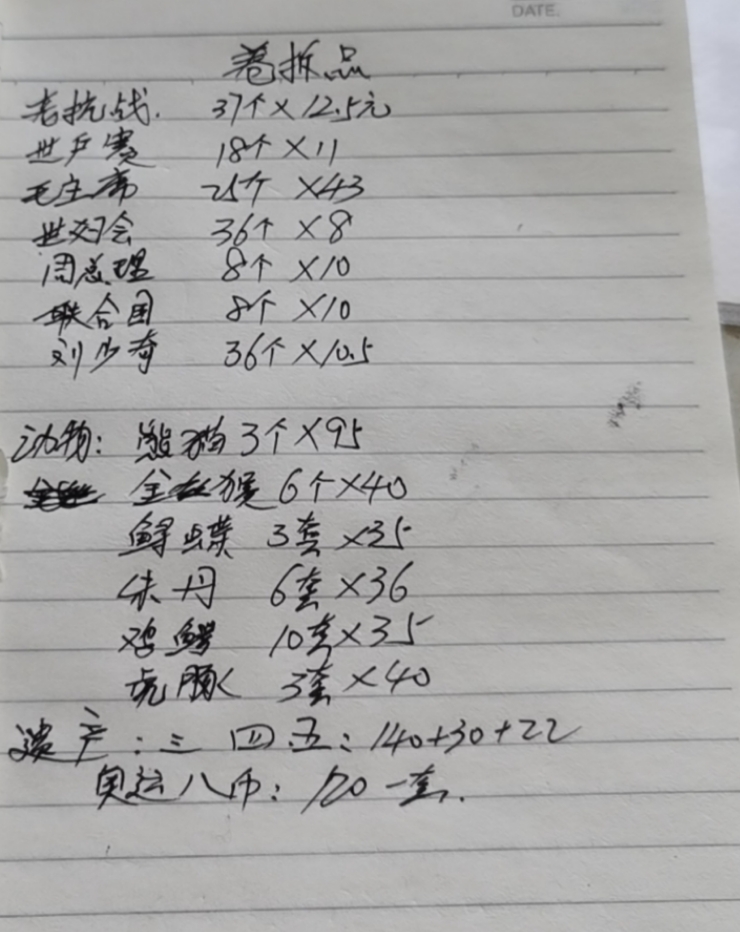 DATE.
卷拆品
老抗战. 37个×12.5元
世乒赛 18个×11
毛主席 25个×43
世妇会 36个×8
周总理 8个×10
联合国 8个×10
刘少奇 36个×10.5
动物: 熊猫3个×95
金丝猴6个×40
鲟蝶 3套×35
朱丹 6套×36
鸡鳄 10套×35
虎豚 3套×40
遗产: 三 四 五: 140+30+22
奥运八币: 120一套.